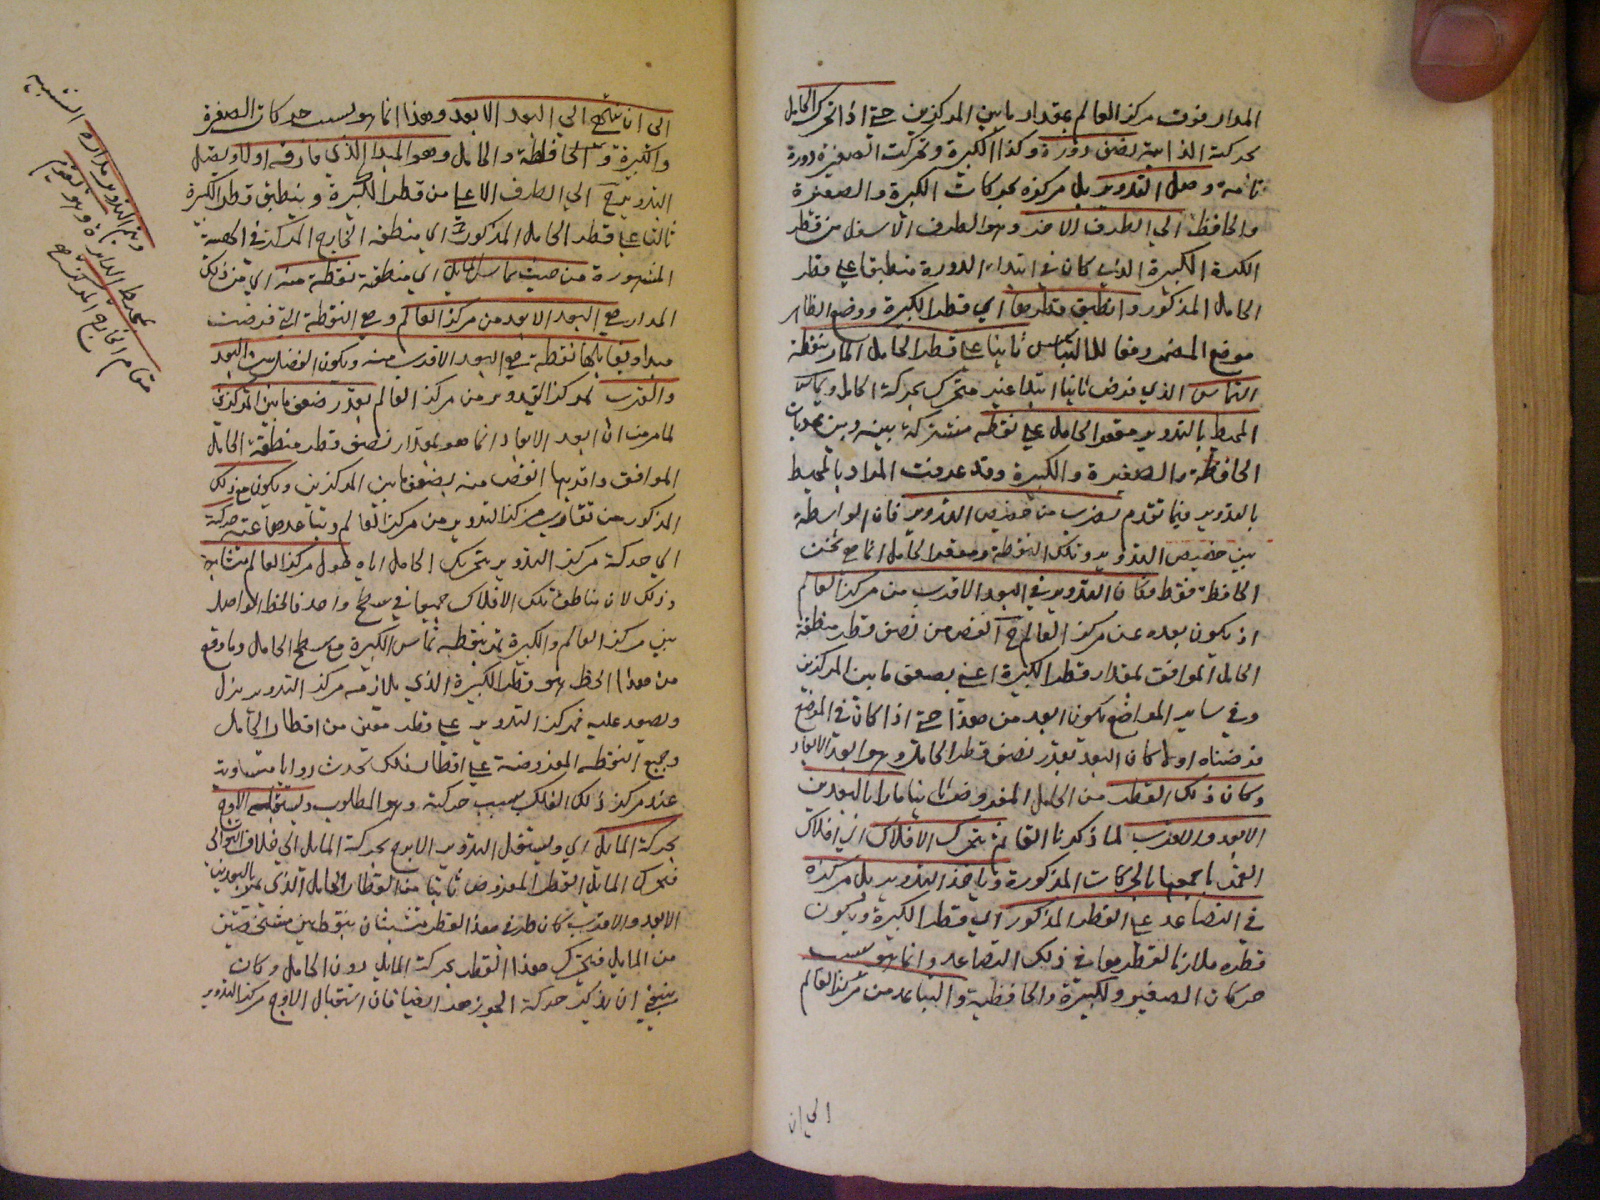 المدار فوق مركز العالم بمقدار ما بين المركزين حتى اذا تحرك الحامل
بحركته الذاتية نصف دورة وكذا الكبيرة وتحركت الصغيرة دورة
تامة وصل التدوير بل مركزه بحركات الكبيرة والصغيرة
والحافظة الى الطرف الاخر وهو الطرف الاسفل من قطر
الكرة الكبيرة الذي كان في ابتداء الدورة منطبقا على قطر
الحامل المذكور وانطبق قطرها اي قطر الكبيرة ووضع الظاهر
موضع المضمر دفعا للالتباس ثانيا على قطر الحامل المار بنقطة
التماس الذي فرض ثانيا ابتداء عنه متحرك بحركة الحامل ويماس
المحيط بالتدوير مقعر الحامل على نقطة مشتركة بينه وبين محدبات
الحافظة والصغيرة والكبيرة وقد عرفت المراد بالمحيط
بالتدوير فيما تقدم بقرب من حضيض التدوير فان الواسطة
بين حضيض التدوير وتلك النقطة ومقعر الحامل انما هي ثخن
الحافظة فقط فكان التدوير في البعد الاقرب من مركز العالم
اذ يكون بعده عن مركز العالم ح انقص من نصف قطر منطقة
الحامل الموافق بمقدار قطر الكبيرة اعني بضعف ما بين المركزين
وفي ساير المواضع يكون ابعد من هذا حتى اذا كان في الموضع
فرضناه اولا كان البعد بقدر نصف قطر الحامل وهو ابعد الابعاد
وكان ذلك القطر من الحامل المفروض ثانيا مارا بالبعدين
الابعد والاقرب لما ذكرنا القائم ثم تتحرك الافلاك اي افلاك
القمر باجمعها بالحركات المذكورة وياخذ التدوير بل مركزه
في التصاعد على القطر المذكور اي قطر الكبيرة ويكون
قطره ملازما لقطرها في ذلك التصاعد وانما هو بسبب
حركات الصغيرة والكبيرة والحافظة والتباعد من مركز العالم
الى ان
الى ان ينتهي الى البعد الابعد وهذا انما هو بسبب حركات الصغيرة
والكبيرة والحافظة والحامل وهو المبدا الذي فارقه اولا ويصل
التدوير ح الى الطرف الاعلى من قطر الكبيرة وينطبق قطر الكبيرة
ثالثا على قطر الحامل المذكور اي منطقة الخارج المركز في الهيئة
المشهورة من حيث يماس المايل اي منطقة نقطة منه اي من ذلك
المدار هي البعد الابعد من مركز العالم وهي النقطة التي فرضت
مبدا ويقابلها نقطة هي البعد الاقرب منه ويكون الفضل بين البعد
والقرب لمركز التدوير من مركز العالم بقدر ضعف ما بين المركزين
لما مر من ان البعد الابعد انما هو بمقدار نصف قطر منطقة الحامل
الموافق واقربها انقص منه بضعف ما بين المركزين ويكون مع ذلك
المذكور من تقارب مركز التدوير من مركز العالم وتباعدهما عنه حركة
اي حركة مركز التدوير بتحريك الحامل اياه حول مركز العالم متشابهة
وذلك لان مناطق تلك الافلاك جميعا في سطح واحد فالخط الواصل
بين مركز العالم والكبيرة يمر بنقطة تماس الكبيرة مع سطح الحامل وما وقع
من هذا الخط هو قطر الكبيرة الذي يلازمه مركز التدوير ينزل
ويصعد عليه فمركز التدوير على قطر معين من اقطار الحامل
وجميع النقطة المفروضة على اقطار فلك تحدث زوايا متساوية
عند مركز ذلك الفلك بسبب حركته وهو المطلوب ويستقبله الاوج
بحركة المايل اي ويستقبل التدوير الاوج بحركة المايل الى خلاف التوالي
فتحرك المايل القطر المفروض ثانيا من اقطار الحامل الذي يمر بالبعدين
الابعد والاقرب كان طرفي هذا القطر متشبثان بنقطتين مشخصتين
من المايل فيتحرك هذا القطر بحركة المايل دون الحامل وكان
ينبغي ان يذكر حركة الجوزهر ايضا فان استقبال الاوج مركز التدوير
وبين التدوير مداره الشبيه
بمحيط الدايرة وهو يقوم
مقام الخارج المركز